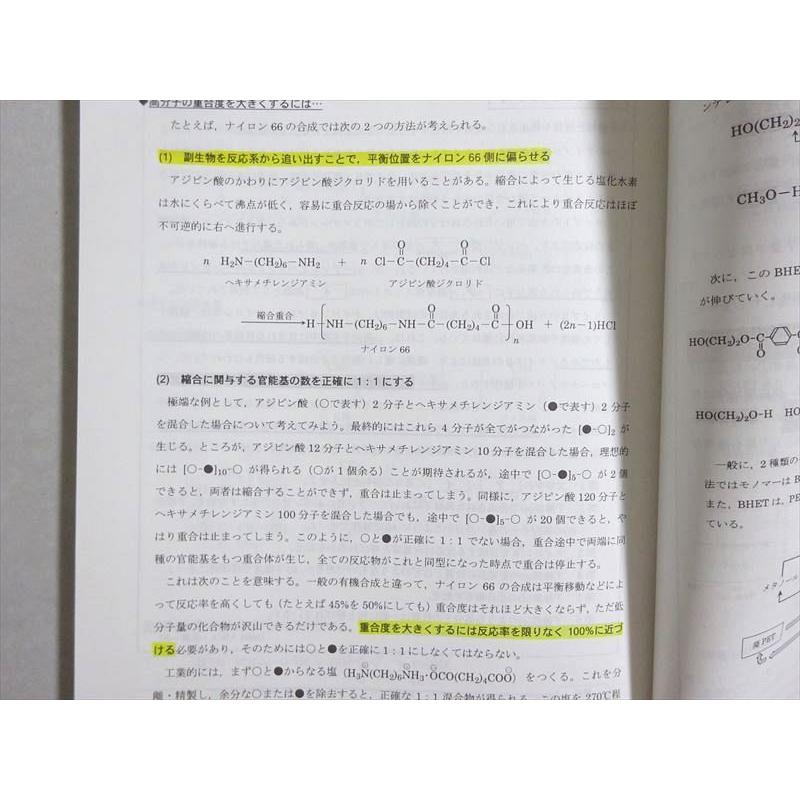 ◆高分子の重合度を大きくするには…
たとえば，ナイロン 66 の合成では次の 2 つの方法が考えられる。
(1) 副生物を反応系から追い出すことで，平衡位置をナイロン 66 側に偏らせる
アジピン酸のかわりにアジピン酸ジクロリドを用いることがある。縮合によって生じる塩化水素
は水にくらべて沸点が低く，容易に重合反応の場から除くことができ，これにより重合反応はほぼ
不可逆的に右へ進行する。
O O
n H₂N−(CH₂)₆−NH₂ + n Cl−C−(CH₂)₄−C−Cl
ヘキサメチレンジアミン アジピン酸ジクロリド
O O
縮合重合 H[NH−(CH₂)₆−NH−C−(CH₂)₄−C]ₙOH + (2n−1)HCl
ナイロン 66
(2) 縮合に関与する官能基の数を正確に 1：1 にする
極端な例として，アジピン酸（○で表す）2 分子とヘキサメチレンジアミン（●で表す）2 分子
を混合した場合について考えてみよう。最終的にはこれら 4 分子が全てがつながった [●-○]₂ が
生じる。ところが，アジピン酸 12 分子とヘキサメチレンジアミン 10 分子を混合した場合，理想的
には [○-●]₁₀-○ が得られる（○が 1 個余る）ことが期待されるが，途中で [○-●]₅-○ が 2 個
できると，両者は縮合することができず，重合は止まってしまう。同様に，アジピン酸 120 分子と
ヘキサメチレンジアミン 100 分子を混合した場合でも，途中で [○-●]₅-○ が 20 個できると，や
はり重合は止まってしまう。このように，○と●が正確に 1：1 でない場合，重合途中で両端に同
種の官能基をもつ重合体が生じ，全ての反応物がこれと同型になった時点で重合は停止する。
これは次のことを意味する。一般の有機合成と違って，ナイロン 66 の合成は平衡移動などによ
って反応率を高くしても（たとえば 45%を 50%にしても）重合度はそれほど大きくならず，ただ低
分子量の化合物が沢山できるだけである。重合度を大きくするには反応率を限りなく 100%に近づ
ける必要があり，そのためには○と●を正確に 1：1 にしなくてはならない。
工業的には，まず○と●からなる塩（H₃N(CH₂)₆NH₃・OCO(CH₂)₄COO）をつくる。これを分
離・精製し，余分な○または●を除去すると，正確な 1：1 混合物が得られる。この塩を 270℃程
HO(CH₂)₂
CH₃O−H
次に，この BHE
が伸びていく。
HO(CH₂)₂O−C
O
HO(CH₂)₂O−H HO
一般に，2 種類の
法ではモノマーは B
また，BHET は，PE
ている。
メタノール
廃PET